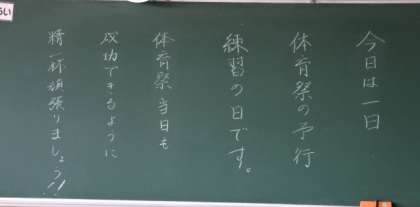 今日は一日
体育祭の予行
練習の日です。
体育祭当日も
成功できるように
精一杯頑張りましょう!!